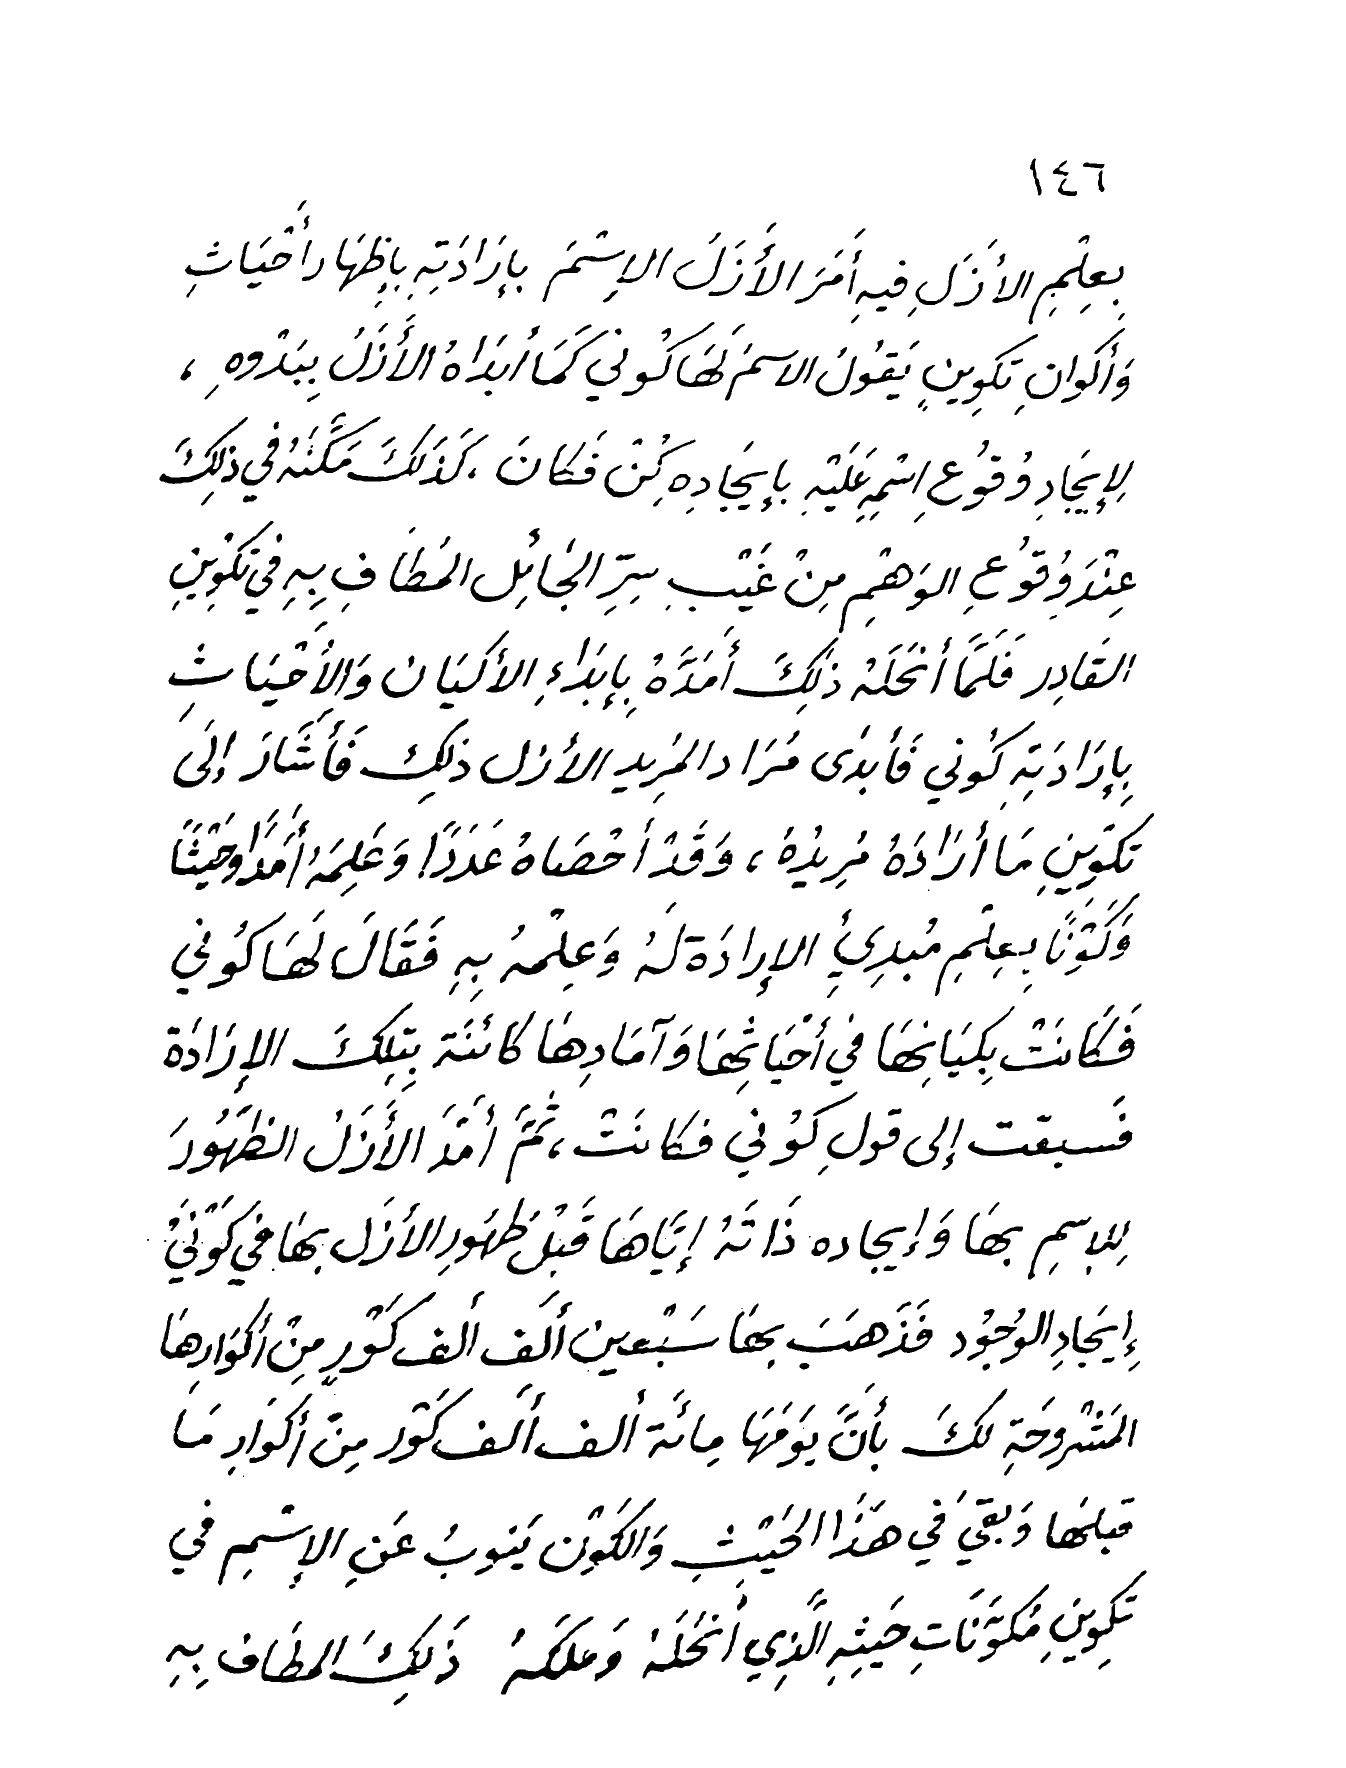 ١٤٦
بِعِلْمِ الأَزَلِ فِيهِ أَمَرَ الأَزَلُ الإِسْمَ بِإِرَادَتِهِ بِإِظْهَارِ أَحْيَاثِ
وَأَكْوَانِ تَكْوِينٍ يَقُولُ الاسمُ لَهَا كُونِي كَمَا أَبْدَاهُ الأَزَلُ بِبَدْوِهِ ،
لإِيجَادِ وُقُوعِ اسْمِهِ عَلَيْهِ بِإِيجَادِهِ كُنْ فَكَانَ ، كَذَلِكَ مَكَّنَهُ فِي ذلِكَ
عِنْدَ وُقُوعِ الوَهْمِ مِنْ غَيْبِ سِرِّ الجَائِلِ المُطَافِ بِهِ فِي تَكْوِينِ
القَادِرِ فَلَمَّا أَنْحَلَهُ ذَلِكَ أَمَدَّهُ بِإِبْدَاءِ الأَكْيَانِ وَالأَحْيَاثِ
بِإِرَادَتِهِ كُونِي فَأَبْدَى مُرَادَ المُرِيدِ الأَزَلِ ذلِكَ فَأَشَارَ إِلَى
تَكْوِينِ مَا أَرَادَهُ مُرِيدُهُ ، وَقَدْ أَحْصَاهُ عَدَدًا وَعَلِمَهُ أَمَدًا وَحَيْثًا
وَكَوْنًا بِعِلْمِ مُبْدِئِ الإِرادَةِ لَهُ وَعِلْمُهُ بِهِ فَقَالَ لَهَا كُونِي
فَكَانَتْ بِكَيَانِهَا فِي أَحْيَاثِهَا وَآمَادِهَا كَائِنَةً بِتِلْكَ الإِرَادَة
فَسبقت إلى قولِ كُونِي فكانَتْ ، ثُمَّ أَمَدَّ الأَزَلُ الظُّهُورَ
لِلإسمِ بِهَا وَإِيجاده ذَاتَهُ إِيَّاهَا قَبْلَ ظُهُورِ الأَزَلِ بِهَا فِي كَوْنَيْ
إِيجَادِ الوُجُودِ فَذَهَبَ بِهَا سَبْعِينَ أَلفِ أَلفِ كَوْرٍ مِنْ أَكْوَارِهَا
المَشْرُوحَةِ لَكَ بِأَنَّ يَوْمَهَا مِائَة أَلف أَلف كَوْر مِنْ أَكْوَارِ مَا
قبلَهَا وَبَقِيَ فِي هَذَا الحَيْثِ وَالكَوْنِ يَنُوبُ عَنِ الإِسْمِ فِي
تَكْوِينِ مُكَوَّنَاتِ حَيْثِهِ الَّذِي أَنْحَلَهُ وَمَلَّكَهُ ذَلِكَ المطَاف بِهِ